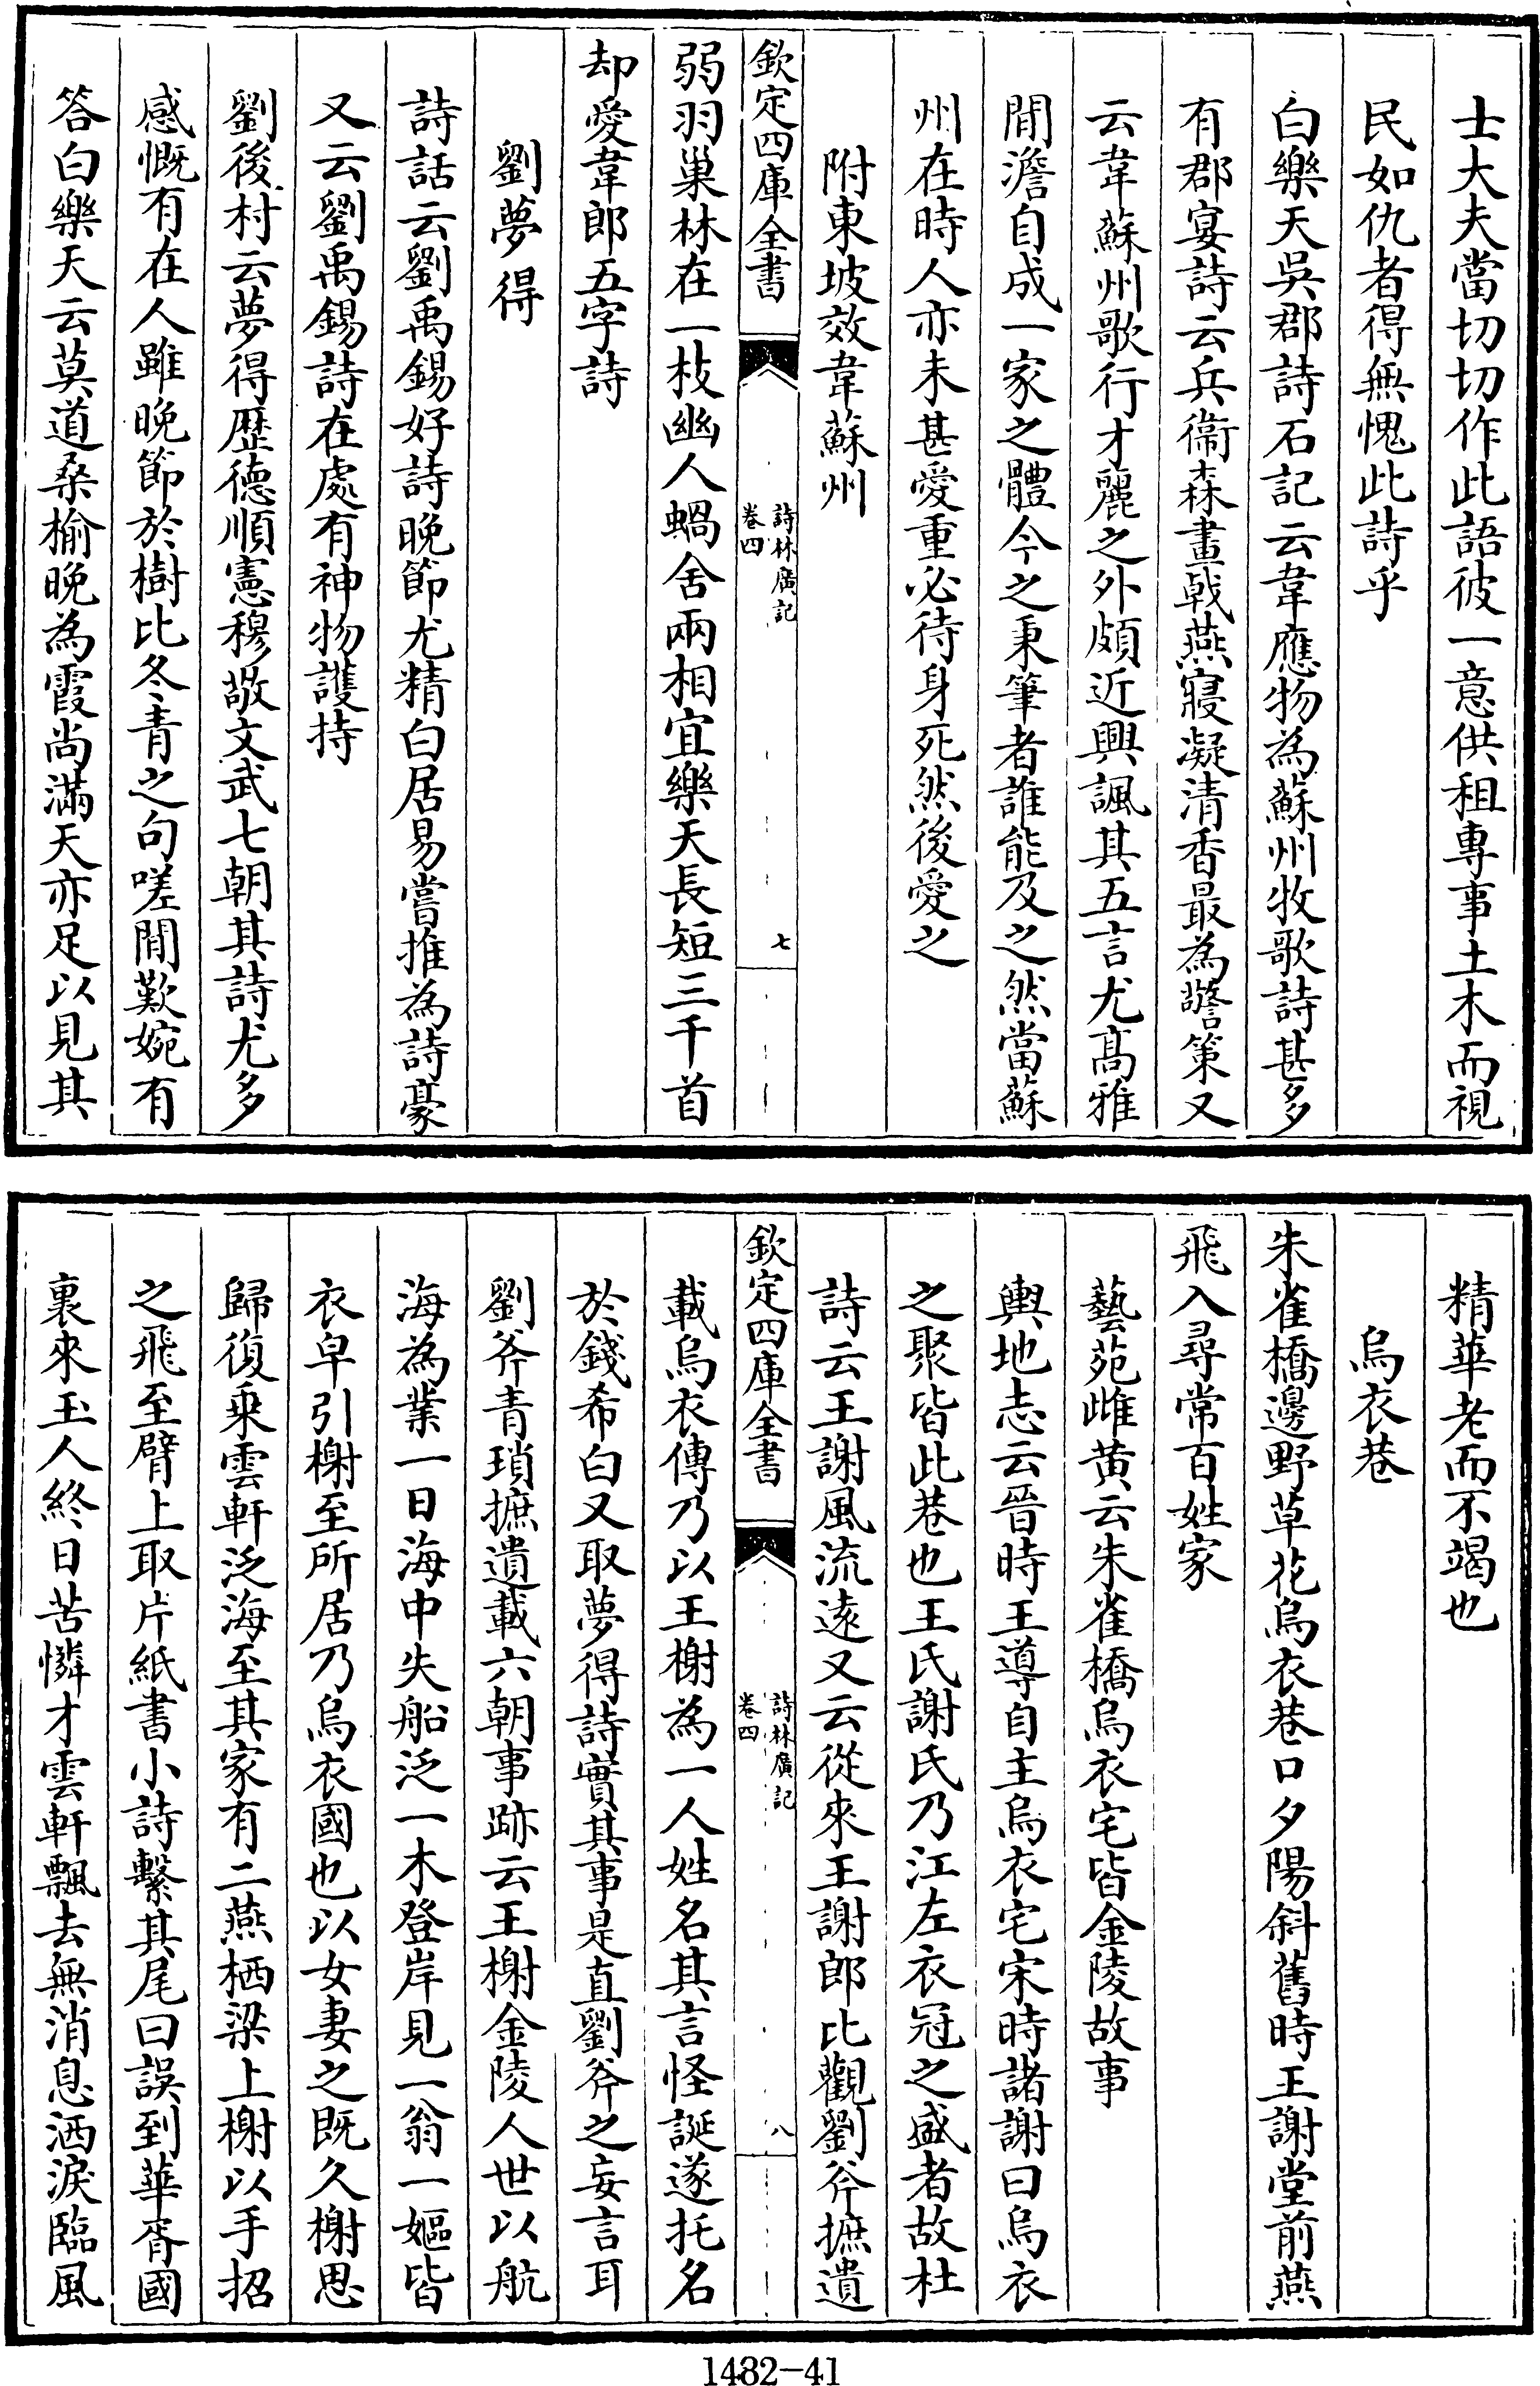 士大夫當切切作此語彼一意供租專事土木而視
民如仇者得無愧此詩乎
白樂天吳郡詩石記云韋應物為蘇州牧歌詩甚多
有郡宴詩云兵衞森畫戟燕寢凝清香最為警策又
云韋蘇州歌行才麗之外頗近興諷其五言尤髙雅
閒澹自成一家之體今之秉筆者誰能及之然當蘇
州在時人亦未甚愛重必待身死然後愛之
附東坡效韋蘇州
欽定四庫全書
詩林廣記
卷四
七
弱羽巢林在一枝幽人蝸舍兩相宜樂天長短三千首
却愛韋郎五字詩
劉夢得
詩話云劉禹錫好詩晚節尤精白居易嘗推為詩豪
又云劉禹錫詩在處有神物護持
劉後村云夢得歴德順憲穆敬文武七朝其詩尤多
感慨有在人雖晚節於樹比冬青之句嗟閒歎婉有
答白樂天云莫道桑榆晚為霞尚滿天亦足以見其
精華老而不竭也
烏衣巷
朱雀橋邊野草花烏衣巷口夕陽斜舊時王謝堂前燕
飛入尋常百姓家
藝苑雌黃云朱雀橋烏衣宅皆金陵故事
輿地志云晉時王導自主烏衣宅宋時諸謝曰烏衣
之聚皆此巷也王氏謝氏乃江左衣冠之盛者故杜
詩云王謝風流逺又云從來王謝郎比觀劉斧摭遺
欽定四庫全書
詩林廣記
卷四
八
載烏衣傳乃以王榭為一人姓名其言怪誕遂托名
於錢希白又取夢得詩實其事是直劉斧之妄言耳
劉斧青瑣摭遺載六朝事跡云王榭金陵人世以航
海為業一日海中失船泛一木登岸見一翁一嫗皆
衣皁引榭至所居乃烏衣國也以女妻之既久榭思
歸復乗雲軒泛海至其家有二燕栖梁上榭以手招
之飛至臂上取片紙書小詩繫其尾曰誤到華胥國
裏來玉人終日苦憐才雲軒飄去無消息洒淚臨風
1482-41